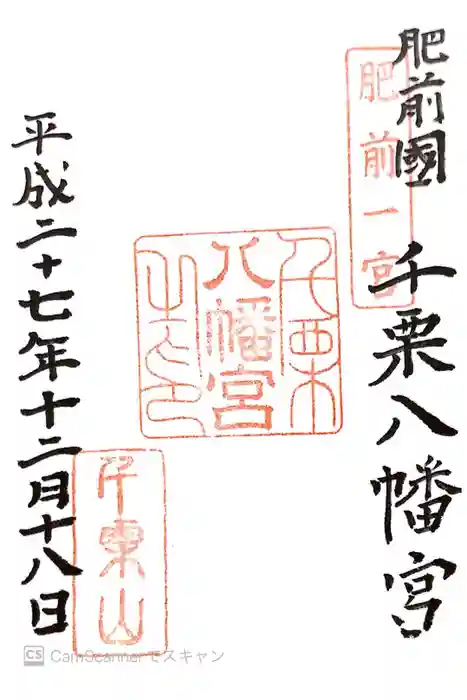 肥前國
千栗八幡宮
肥前一宮
千栗
八幡宮
之印
千栗山
平成二十七年十二月十八日
CS CamScanner でスキャン